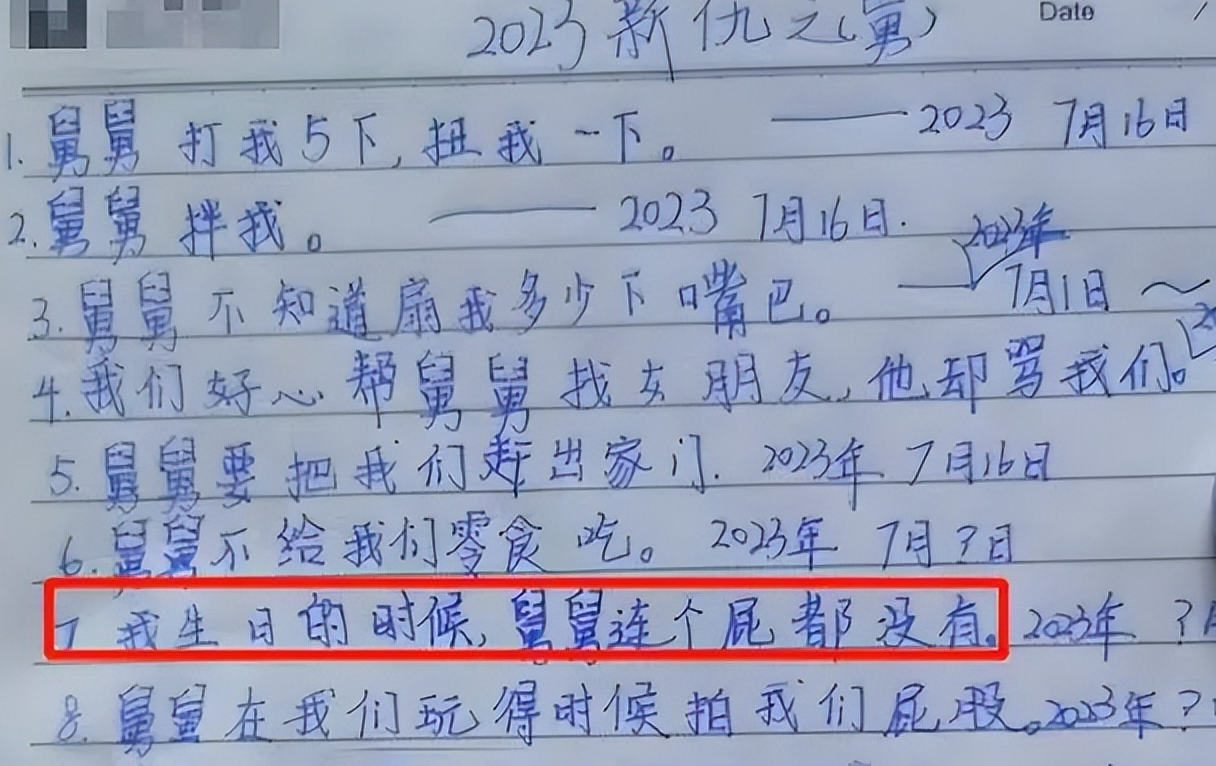 Date /
2023新仇之(舅)
1. 舅舅打我5下,扭我一下。 ——2023 7月16日
2. 舅舅拌我。 ——2023 7月16日.
2023年
3. 舅舅不知道扇我多少下嘴巴。 ——7月1日~
4. 我们好心帮舅舅找女朋友,他却骂我们。
5. 舅舅要把我们赶出家门. 2023年 7月16日
6. 舅舅不给我们零食吃。 2023年 7月?日
7 我生日的时候,舅舅连个屁都没有。 2023年 ?月
8. 舅舅在我们玩得时候拍我们屁股。2023年?